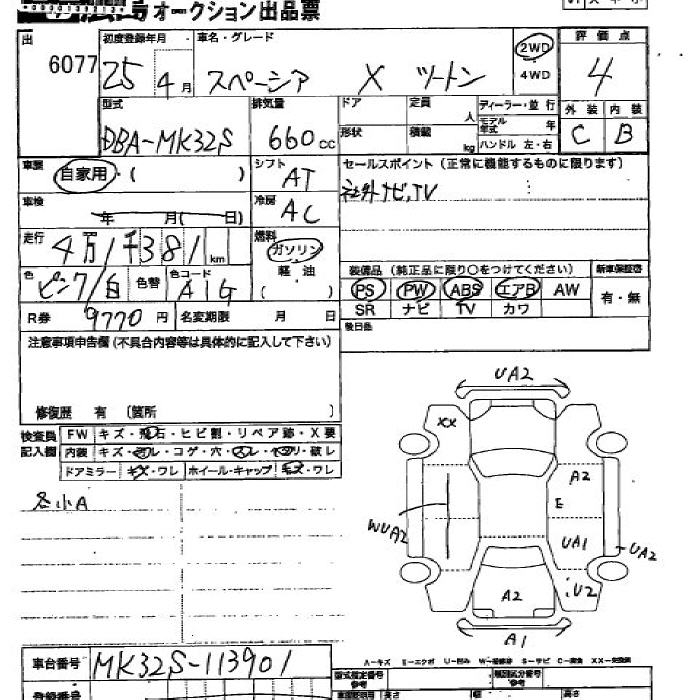 オークション出品票
出 6077
初度登録年月 25年 4月
車名・グレード スペーシア X ツートン
2WD
4WD
評価点 4
外装 C 内装 B
型式 DBA-MK32S
排気量 660cc
ドア 定員 人
形状 積載 kg
ディーラー・並行
モデル年式 年
ハンドル 左・右
車歴 自家用・( )
シフト AT
セールスポイント (正常に機能するものに限ります)
社外ナビ,TV
車検 年 月( 日)
冷房 AC
走行 4万1千381km
燃料 ガソリン
軽油
( )
色 ピンク/白 色替 色コード A1G
装備品 (純正品に限り○をつけてください)
新車保証書
PS PW ABS エアB AW
有・無
SR ナビ TV カワ
R券 9770円 名変期限 月 日
後日品
注意事項申告欄 (不具合内容等は具体的に記入して下さい)
修復歴 有 〔箇所 〕
検査員記入欄
FW キズ・飛石・ヒビ割・リペア跡・X要
内装 キズ・コゲ・穴・スレ・破レ
ドアミラー キズ・ワレ ホイール・キャップ キズ・ワレ
各小A
UA2
XX
A2
E
WUA2
UA1
UA2
U2
A2
A1
車台番号 MK32S-113901
A-キズ E-エクボ U-凹み W-補修跡 S-サビ C-腐食 XX-交換済
登録番号
型式指定番号 参考
類別区分番号 参考
長さ 幅 高さ